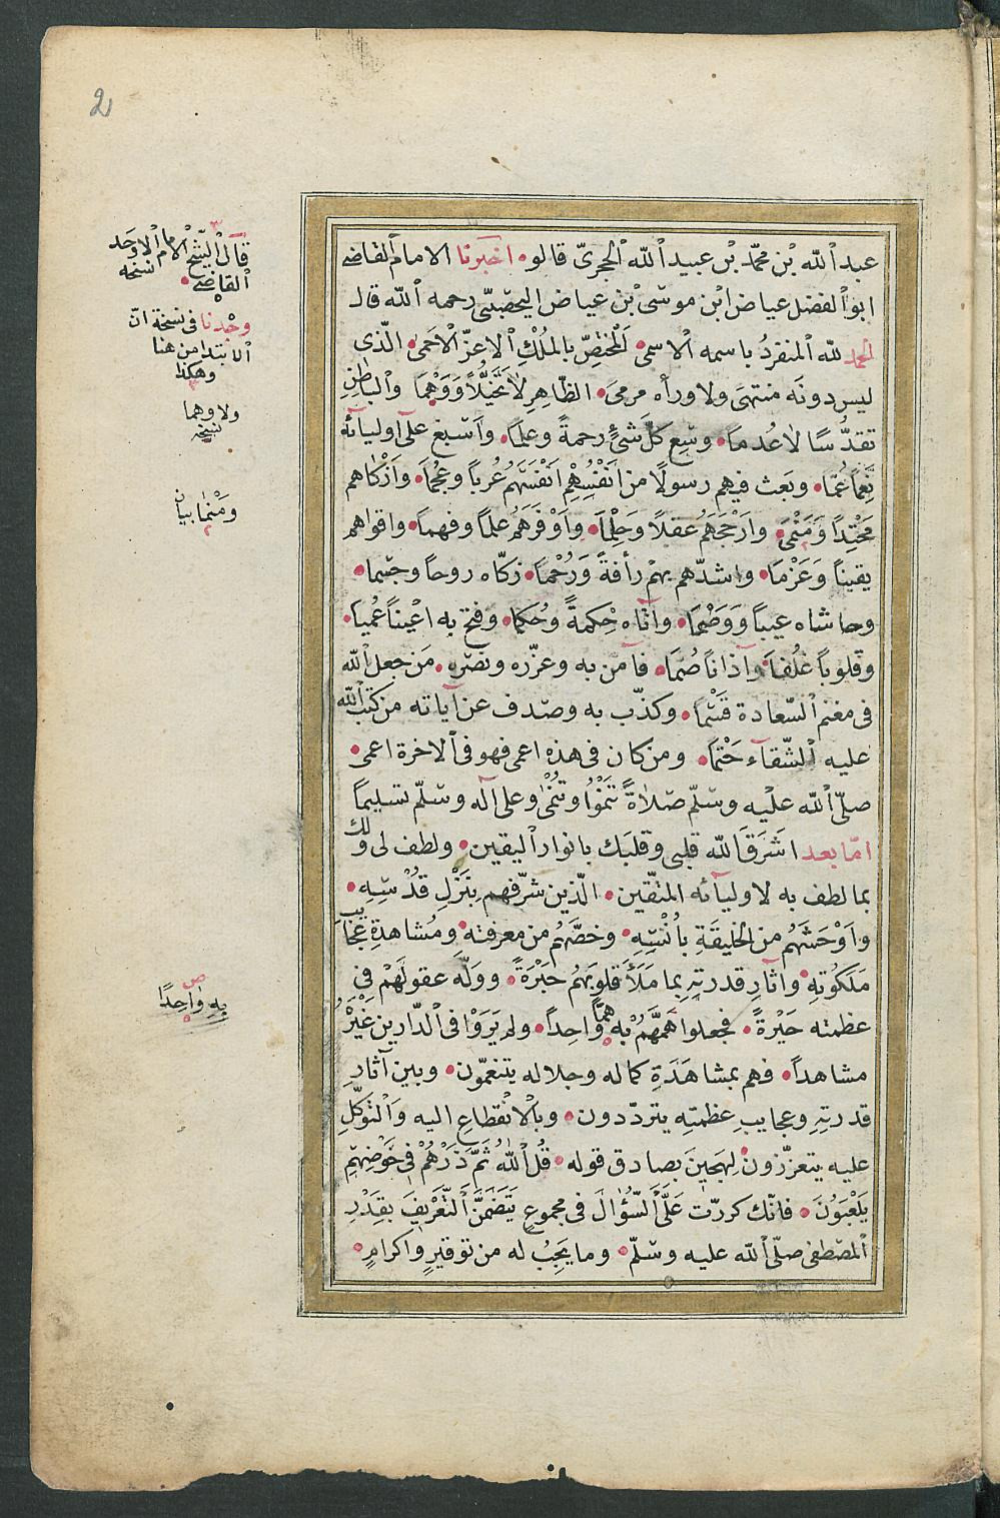 2
عبد الله بن محمّد بن عبيد الله الحجرىّ قالو اخبرنا الامام القاضى
ابو الفضل عياض ابن موسى بن عياض اليحصبىّ رحمه الله قال
الحمد لله المنفردُ باسمه الاسمى المختصّ بالمُلْكِ الاعزّ الاحمىٰ الّذى
ليس دونَه منتهىً ولا وراه مرمىً الظّاهِرِ لا تخَيُّلاً وَوَهْمًا والباطِنِ
تقدُّسًا لا عُدمًا وسِع كلَّ شئٍ رحمةً وعلمًا وأسبغ على اوليآئه
نِعَمًا عُمّا وبَعث فيهم رسولًا من اَنْفُسِهْم اَنْفَسَهُم عُربًا وعُجْمًا وَاَزْكاهم
مَحْتِدًا وَمَنْمىً وارْجَحَهُم عقلًا وَحِلْمًا واَوْفَرَهُم علمًا وفهمًا واقواهم
يقينًا وَعَزْمًا واشدّهم بهم رأفةً وَرُحْمًا زكّاه روحًا وجسمًا
وحاشاه عيبًا وَوَصْمًا وآتاه حِكمةً وحُكمًا وفتح به اعْينًا عُميًا
وقلوبًا غُلْفًا وآذانًا صُمًّا فآمَن به وعزّره ونصَره مَن جعل الله
فى مغنم السّعادة قَسْمًا وكذّب به وصَدف عن آياته من كتب الله
عليه الشّقآء حَتْمًا ومن كان فى هذه اعمى فهو فى الاخرة اعمى
صلّى الله عليه وسلّم صلاةً تَنْمُوْا وتُنْمٰى وعلى آله وسلّم تسليمًا
امّا بعد اشَرَقَ الله قلبى وقلبَك بانوار اليقين ولطف لى ولك
بما لطف به لاوليآئه المتّقين الّذين شرّفهم بِنُزْلِ قُدْسِهِ
واَوْحَشَهُم من الخليقَةِ باُنْسِهِ وخصَّهُم من معرفته ومُشاهدةِ عجايبِ
مَلَكُوتِهِ واثآرِ قدرتِهِ بِما مَلَأَ قلوبَهُم حَبْرَةً ووَلَّهَ عقولَهُمْ فى
عظمته حَيْرةً فجعلوا هَمَّهُمْ بِه همًّا واحِدًا ولم يَرَوْا فى الدّارين غَيْرَهُ
مشاهدًا فهم بمشاهَدَةِ كماله وجلاله يتنعمّون وبين آثارِ
قدرتِهِ وعجايبِ عظمتِهِ يتردّدون وبالْانْقطاعِ اليه وَالْتَوَكّلِ
عليه يتعزّزون لهجِينَ بصادق قوله قُلِ اللهُ ثُمَّ ذَرْهُمْ فى خَوْضِهِمْ
يَلْعَبَوُنَ فانّك كررّت عَلَىَّ السُّؤالَ فى مجموعٍ يَتَضَمَّنُ التّعْرِيفَ بِقَدْرِ
المصطفى صلّى الله عليه وسلّم وما يَجِبُ له من توقيرٍ واكرامٍ
قال الشّيخ الامام الاوحد
القاضى نسخه
وجدنا فى نسخة انّ
الابتدا من هنا
وهكذا
ولا وهما
نسخه
ومَنْمًا بيان
ص
بِهِ واحِدًا